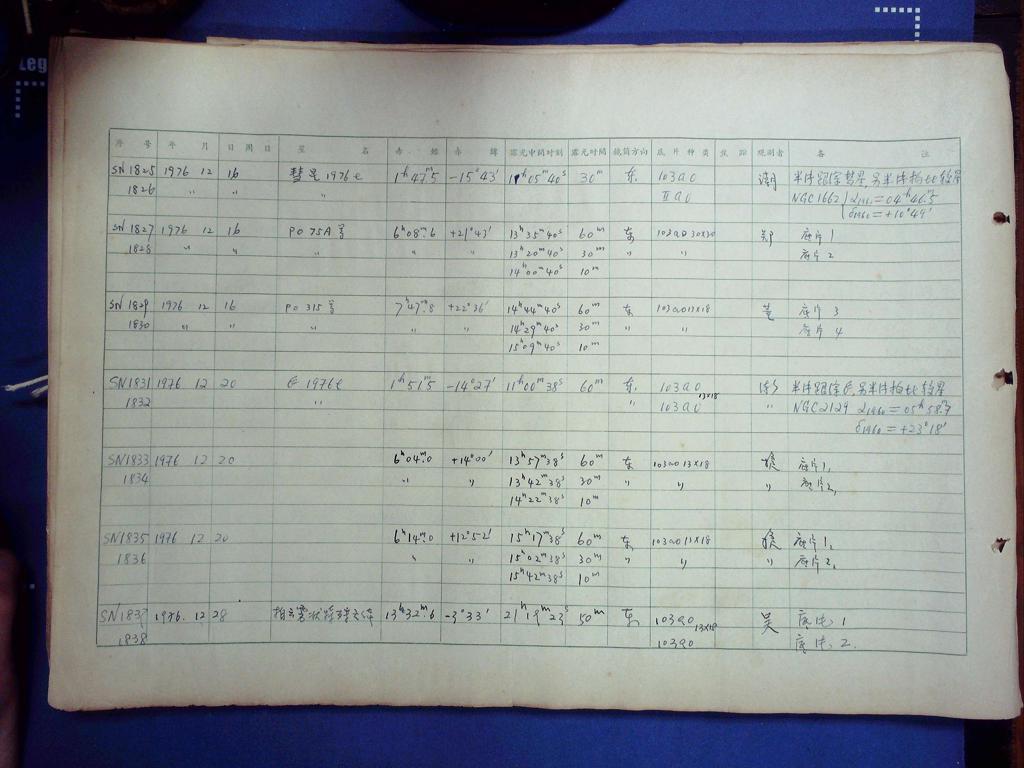 Leg
序 号 年 月 日 周日 星 名 赤 经 赤 纬 露光中间时刻 露光时间 镜筒方向 底片种类 焦距 观测者 备 注
SN1825 1976 12 16 彗星1976e 1ʰ47ᵐ.5 -15°43′ 05ᵐ40ˢ 30ᵐ 东 103aO 半片跟踪彗星,另半片拍比较星
1826 〃 〃 IIaO NGC1662 α1960=04ʰ46ᵐ.5
δ1960=+10°49′
SN1827 1976 12 16 PO 75A号 6ʰ08ᵐ.6 +21°43′ 13ʰ35ᵐ40ˢ 60ᵐ 东 103aO 30×30 郑 底片1
1828 〃 〃 〃 〃 〃 13ʰ20ᵐ40ˢ 30ᵐ 〃 〃 底片2
14ʰ00ᵐ40ˢ 10ᵐ
SN1829 1976 12 16 PO 315号 7ʰ47ᵐ.8 +22°36′ 14ʰ44ᵐ40ˢ 60ᵐ 东 103aO13×18 底片3
1830 〃 〃 〃 〃 〃 14ʰ29ᵐ40ˢ 30ᵐ 〃 〃 底片4
15ʰ09ᵐ40ˢ 10ᵐ
SN1831 1976 12 20 1976e 1ʰ51ᵐ.5 -14°27′ 11ʰ00ᵐ38ˢ 60ᵐ 东 103aO 半片跟踪 另半片拍比较星
1832 〃 〃 103aO 13×18 〃 NGC2129 α1960=05ʰ58ᵐ.7
δ1960=+23°18′
SN1833 1976 12 20 6ʰ04ᵐ.0 +14°00′ 13ʰ57ᵐ38ˢ 60ᵐ 东 103aO13×18 底片1,
1834 〃 〃 13ʰ42ᵐ38ˢ 30ᵐ 〃 〃 〃 底片2,
14ʰ22ᵐ38ˢ 10ᵐ
SN1835 1976 12 20 6ʰ14ᵐ.0 +12°52′ 15ʰ17ᵐ38ˢ 60ᵐ 东 103aO13×18 底片1,
1836 〃 〃 15ʰ02ᵐ38ˢ 30ᵐ 〃 〃 〃 底片2,
15ʰ42ᵐ38ˢ 10ᵐ
SN1837 1976. 12 28 拍云雾状特殊天体 13ʰ32ᵐ.6 -3°33′ 21ʰ19ᵐ23ˢ 50ᵐ 东 103aO 13×18 吴 底片.1
1838 103aO 底片.2.